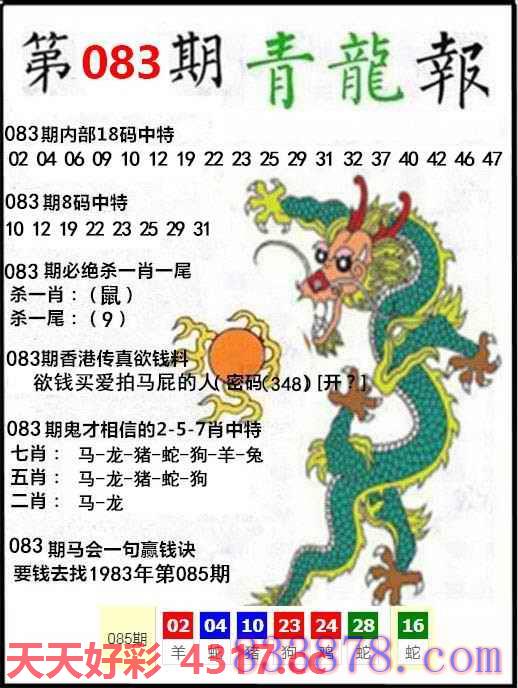 第083期 青龍報
083期内部18码中特
02 04 06 09 10 12 19 22 23 25 29 31 32 37 40 42 46 47
083期8码中特
10 12 19 22 23 25 29 31
083期必绝杀一肖一尾
杀一肖：（鼠）
杀一尾：（9）
083期香港传真欲钱料
欲钱买爱拍马屁的人(密码(348)[开？]
083期鬼才相信的2-5-7肖中特
七肖： 马-龙-猪-蛇-狗-羊-兔
五肖： 马-龙-猪-蛇-狗
二肖： 马-龙
083期马会一句赢钱诀
要钱去找1983年第085期
085期 02 04 10 23 24 28 16
羊 蛇 猪 狗 鸡 蛇 蛇
天天好彩 4317.cc